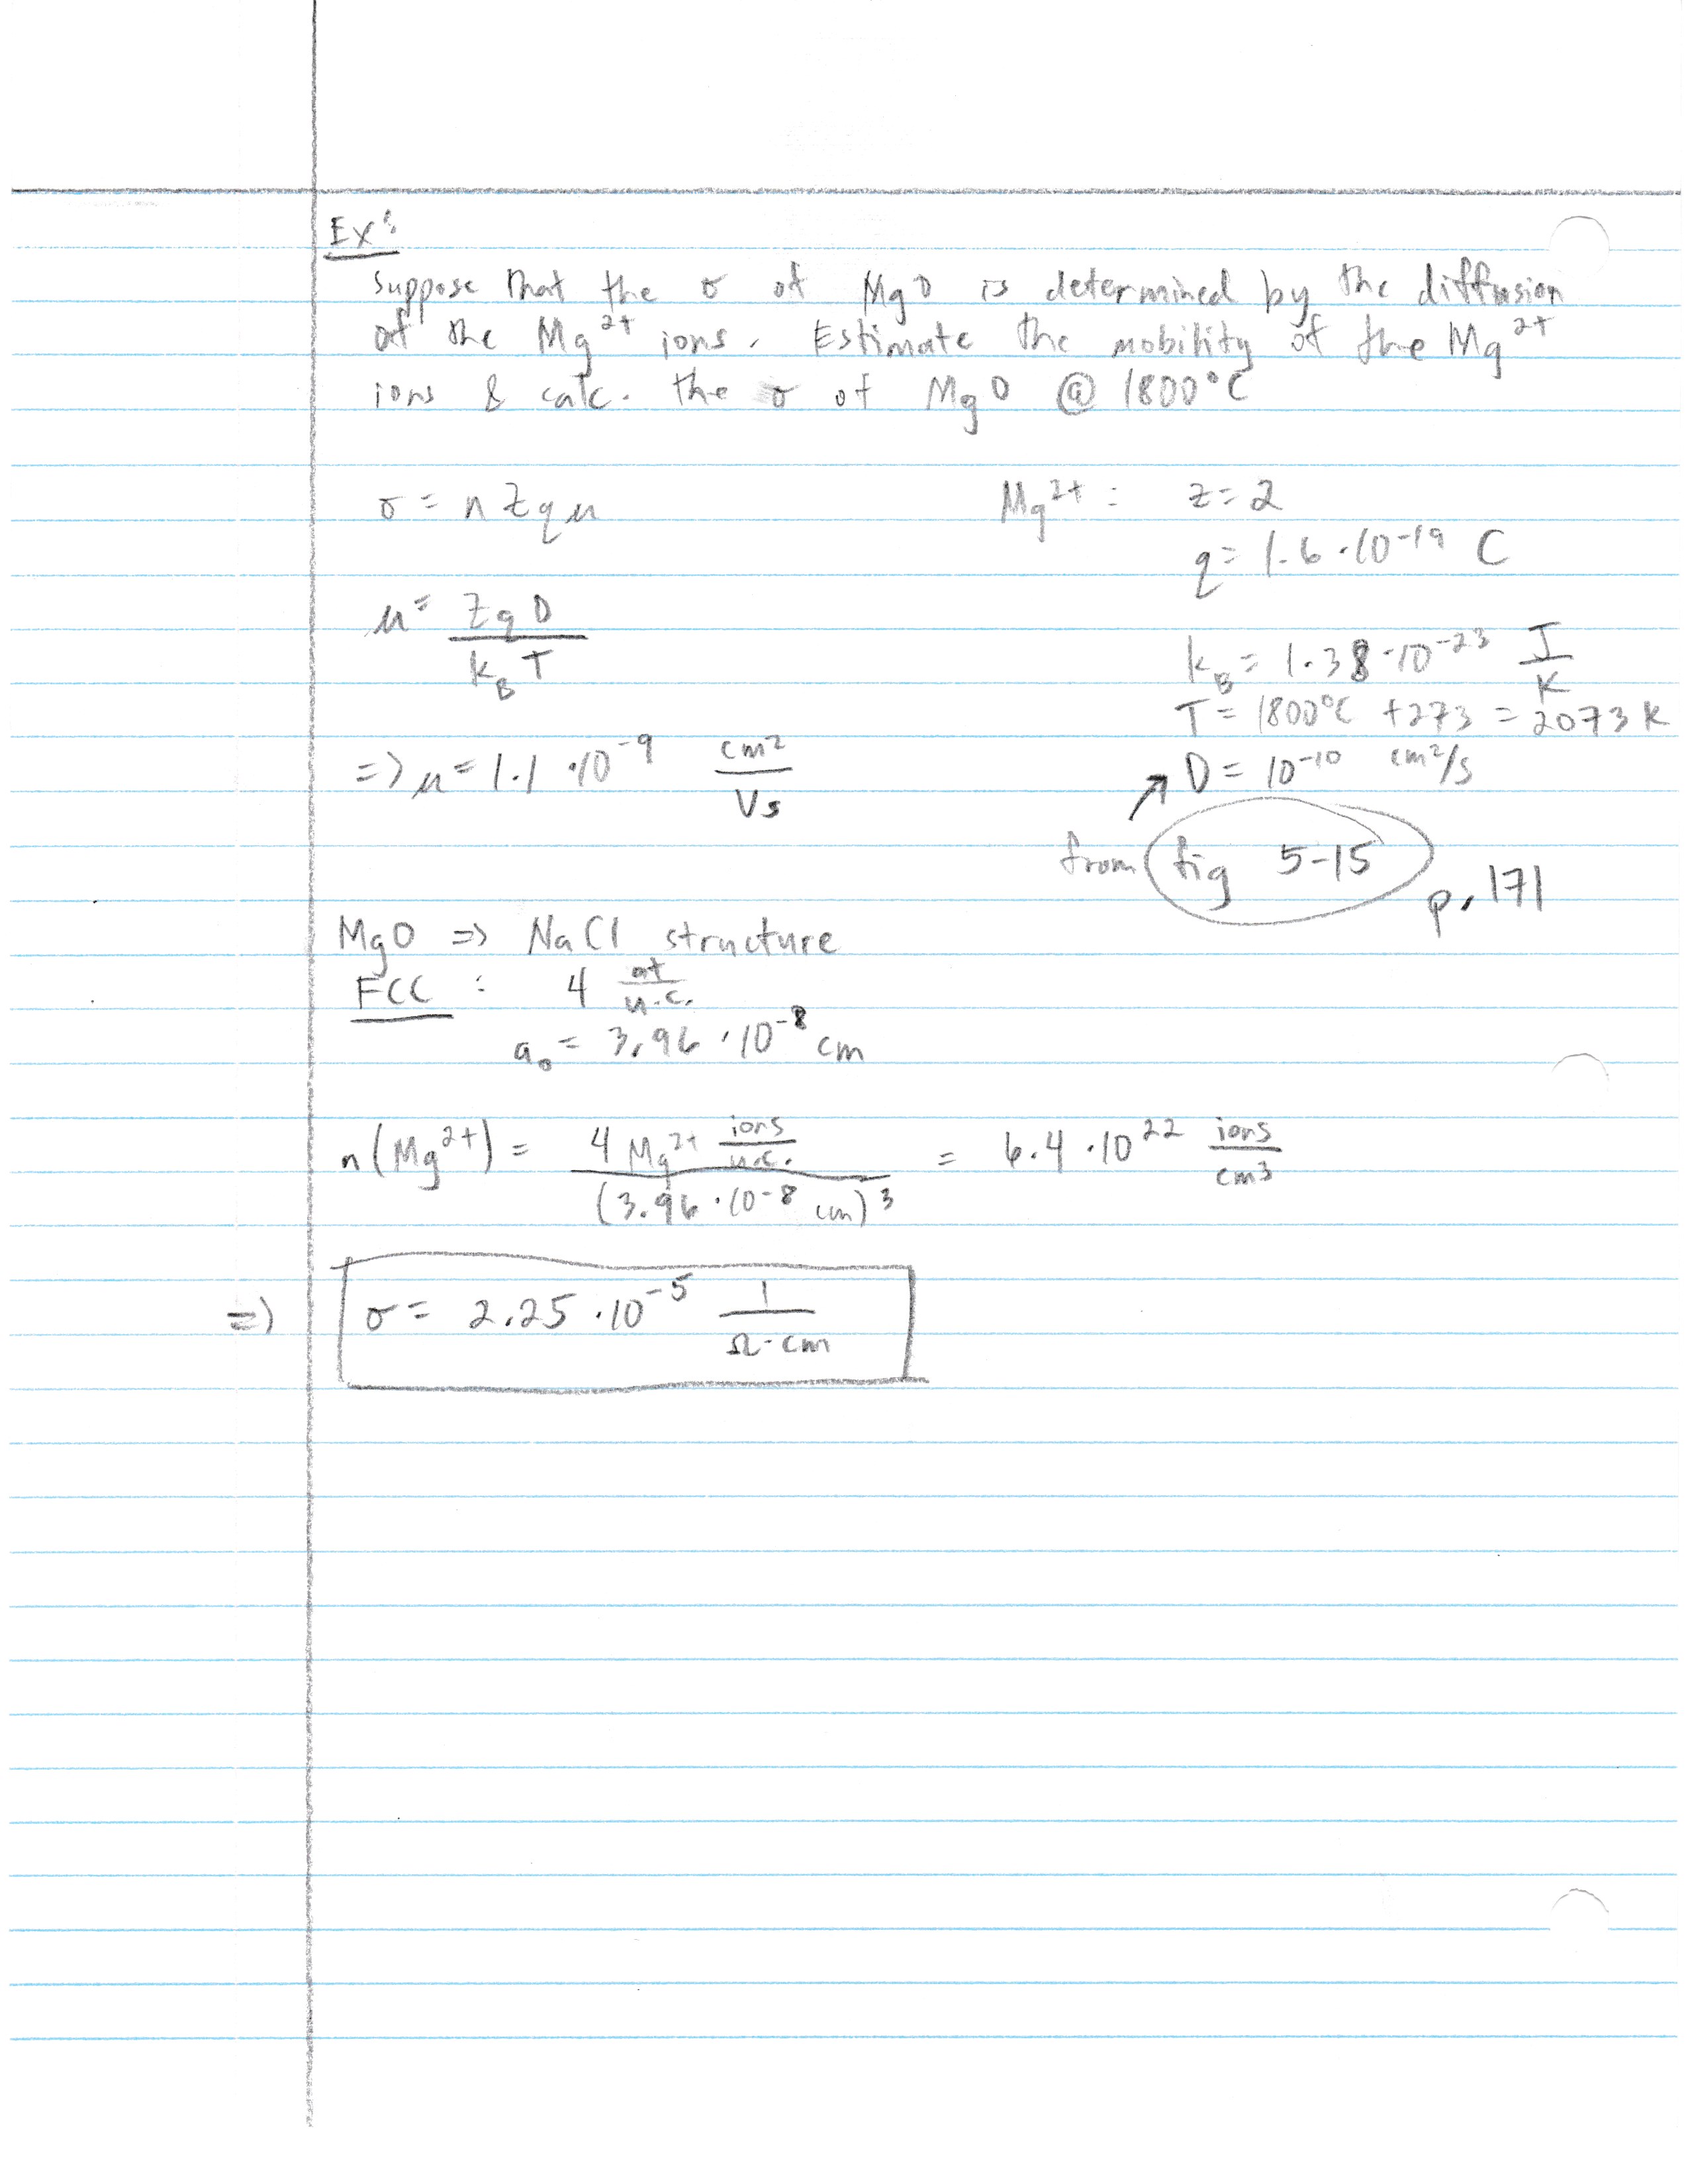 Ex:
Suppose that the σ of MgO is determined by the diffusion
of the Mg²⁺ ions. Estimate the mobility of the Mg²⁺
ions & calc. the σ of MgO @ 1800°C
σ = n Z q μ
Mg²⁺ : z = 2
q = 1.6 · 10⁻¹⁹ C
μ = ZqD / k_B T
k_B = 1.38 · 10⁻²³ J/K
T = 1800°C + 273 = 2073 K
=> μ = 1.1 · 10⁻⁹ cm²/Vs
D = 10⁻¹⁰ cm²/s
from fig 5-15 p. 171
MgO => NaCl structure
FCC : 4 at/u.c.
a₀ = 3.96 · 10⁻⁸ cm
n(Mg²⁺) = 4 Mg²⁺ ions/u.c. / (3.96 · 10⁻⁸ cm)³ = 6.4 · 10²² ions/cm³
=> σ = 2.25 · 10⁻⁵ 1/Ω·cm